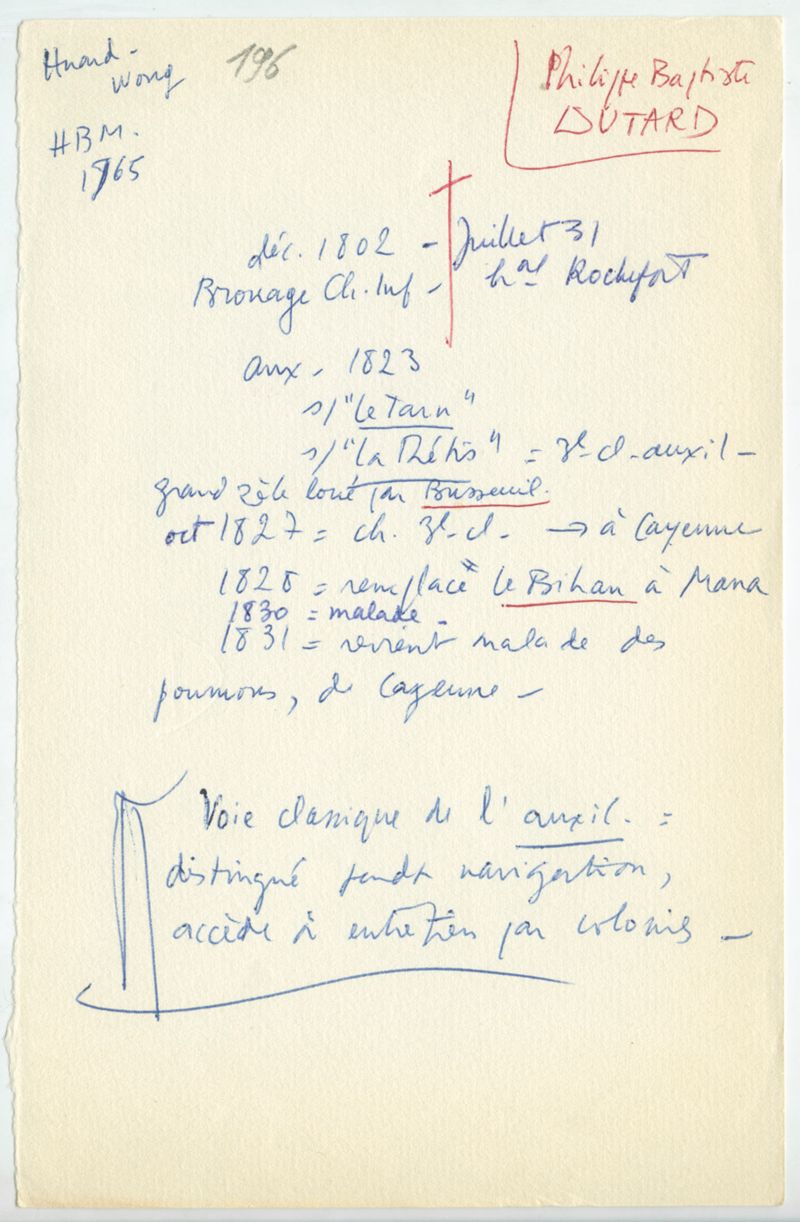 Huard-
Wong
196
HBM.
1965
Philippe Baptiste
DUTARD
déc. 1802 - Juillet 31
Brouage Ch. Inf - hal Rochefort
aux. 1823
s/ "Le Tarn"
s/ "la Thétis" = 3e cl. auxil -
grand zèle loué par Busseuil.
oct 1827 = ch. 3e cl. → à Cayenne
1828 = remplace le Bihan à Mana
1830 = malade -
1831 = revient malade des
poumons, de Cayenne -
Voie classique de l'auxil. =
distingué pendt navigation,
accède à entretien par colonies -